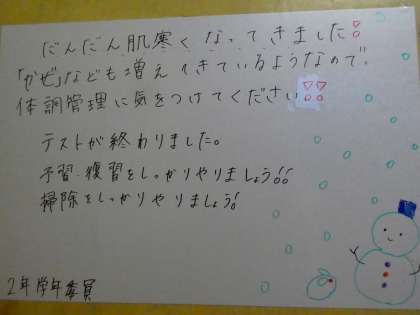 だんだん肌寒くなってきました!
「かぜ」なども増えてきているようなので、
体調管理に気をつけてください!!
テストが終わりました。
予習・復習をしっかりやりましょう!!
掃除をしっかりやりましょう!
2年学年委員